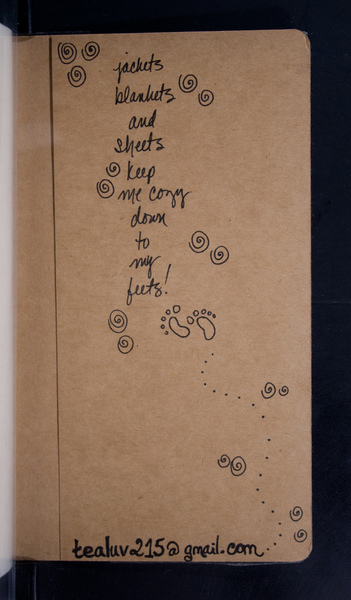 jackets
blankets
and
sheets
keep
me cozy
down
to
my
feets!
tealuv215@gmail.com